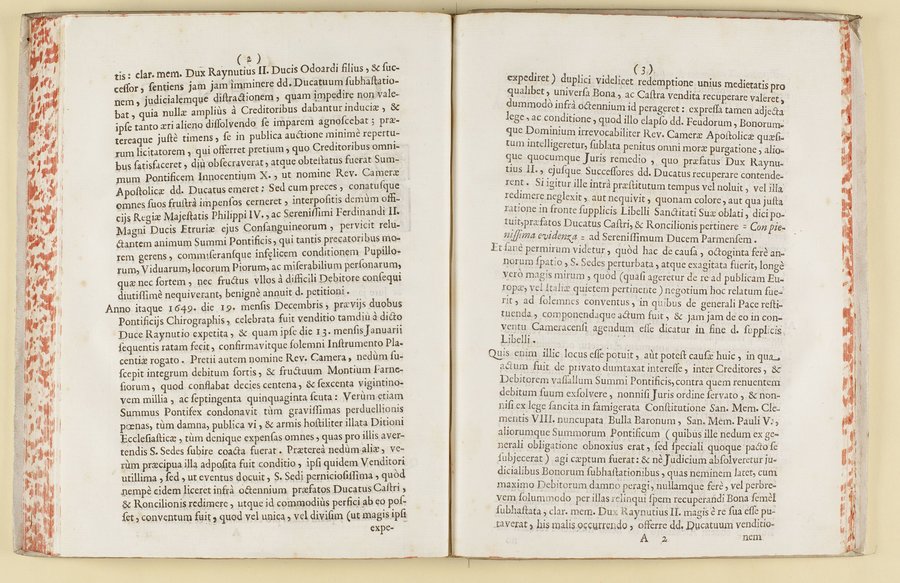 ( 2 )
tis : clar. mem. Dux Raynutius II. Ducis Odoardi filius , & suc-
cessor , sentiens jam jam imminere dd. Ducatuum subhastatio-
nem , judicialemque distractionem , quam impedire non vale-
bat , quia nullæ ampliùs à Creditoribus dabantur induciæ , &
ipse tanto æri alieno dissolvendo se imparem agnoscebat ; præ-
tereaque justè timens , se in publica auctione minimè repertu-
rum licitatorem , qui offerret pretium , quo Creditoribus omni-
bus satisfaceret , diù obsecraverat , atque obtestatus fuerat Sum-
mum Pontificem Innocentium X. , ut nomine Rev. Cameræ
Apostolicæ dd. Ducatus emeret : Sed cum preces , conatusque
omnes suos frustrà impensos cerneret , interpositis demùm offi-
cijs Regiæ Majestatis Philippi IV. , ac Serenissimi Ferdinandi II.
Magni Ducis Etruriæ ejus Consanguineorum , pervicit relu-
ctantem animum Summi Pontificis , qui tantis precatoribus mo-
rem gerens , commiseransque infęlicem conditionem Pupillo-
rum, Viduarum, locorum Piorum, ac miserabilium personarum,
quæ nec sortem , nec fructus vllos à difficili Debitore consequi
diutissimè nequiverant, benignè annuit d. petitioni .
Anno itaque 1649. die 19. mensis Decembris , prævijs duobus
Pontificijs Chirographis , celebrata fuit venditio tamdiù à dicto
Duce Raynutio expetita , & quam ipse die 13. mensis Januarii
sequentis ratam fecit , confirmavitque solemni Instrumento Pla-
centiæ rogato . Pretii autem nomine Rev. Camera , nedùm su-
scepit integrum debitum sortis , & fructuum Montium Farne-
siorum , quod constabat decies centena , & sexcenta vigintino-
vem millia , ac septingenta quinquaginta scuta : Verùm etiam
Summus Pontifex condonavit tùm gravissimas perduellionis
pœnas, tùm damna, publica vi , & armis hostiliter illata Ditioni
Ecclesiasticæ , tùm denique expensas omnes , quas pro illis aver-
tendis S. Sedes subire coacta fuerat . Præterea nedùm aliæ , ve-
rùm præcipua illa adposita fuit conditio , ipsi quidem Venditori
utillima , sed , ut eventus docuit , S. Sedi perniciosissima , quòd
nempè eidem liceret infrà octennium præfatos Ducatus Castri ,
& Roncilionis redimere , utque id commodiùs perfici ab eo pos-
set , conventum fuit , quod vel unica , vel divisim (ut magis ipsi
expe-
( 3 )
expediret ) duplici videlicet redemptione unius medietatis pro
qualibet , universa Bona , ac Castra vendita recuperare valeret ,
dummodò infrà octennium id perageret : expressa tamen adjecta
lege , ac conditione , quod illo elapso dd. Feudorum , Bonorum-
que Dominium irrevocabiliter Rev. Cameræ Apostolicæ quæsi-
tum intelligeretur, sublata penitus omni moræ purgatione , alio-
que quocumque Juris remedio , quo præfatus Dux Raynu-
tius II. , ejusque Successores dd. Ducatus recuperare contende-
rent . Si igitur ille intrà præstitutum tempus vel noluit , vel illa
redimere neglexit , aut nequivit , quonam colore , aut qua justa
ratione in fronte supplicis Libelli Sanctitati Suæ oblati , dici po-
tuit, præfatos Ducatus Castri, & Roncilionis pertinere = Con pie-
nissima evidenza = ad Serenissimum Ducem Parmensem .
Et sanè permirum videtur , quòd hac de causa , octoginta ferè an-
norum spatio , S. Sedes perturbata , atque exagitata fuerit, longè
verò magis mirum , quòd (quasi ageretur de re ad publicam Eu-
ropæ, vel Italiæ quietem pertinente ) negotium hoc relatum fue-
rit , ad solemnes conventus , in quibus de generali Pace resti-
tuenda , componendaque actum fuit , & jam jam de eo in con-
ventu Cameracensi agendum esse dicatur in fine d. supplicis
Libelli .
Quis enim illic locus esse potuit , aùt potest causæ huic , in qua
actum fuit de privato dumtaxat interesse , inter Creditores , &
Debitorem vasallum Summi Pontificis, contra quem renuentem
debitum suum exsolvere , nonnisi Juris ordine servato , & non-
nisi ex lege sancita in famigerata Constitutione San. Mem. Cle-
mentis VIII. nuncupata Bulla Baronum , San. Mem. Pauli V. ,
aliorumque Summorum Pontificum ( quibus ille nedum ex ge-
nerali obligatione obnoxius erat , sed speciali quoque pacto se
subjecerat ) agi cæptum fuerat : & nè Judicium absolveretur ju-
dicialibus Bonorum subhastationibus , quas neminem latet, cum
maximo Debitorum damno peragi , nullamque ferè , vel perbre-
vem solummodo per illas relinqui spem recuperandi Bona semèl
subhastata , clar. mem. Dux Raynutius II. magis è re sua esse pu-
taverat , his malis occurrendo , offerre dd. Ducatuum venditio-
A 2
nem